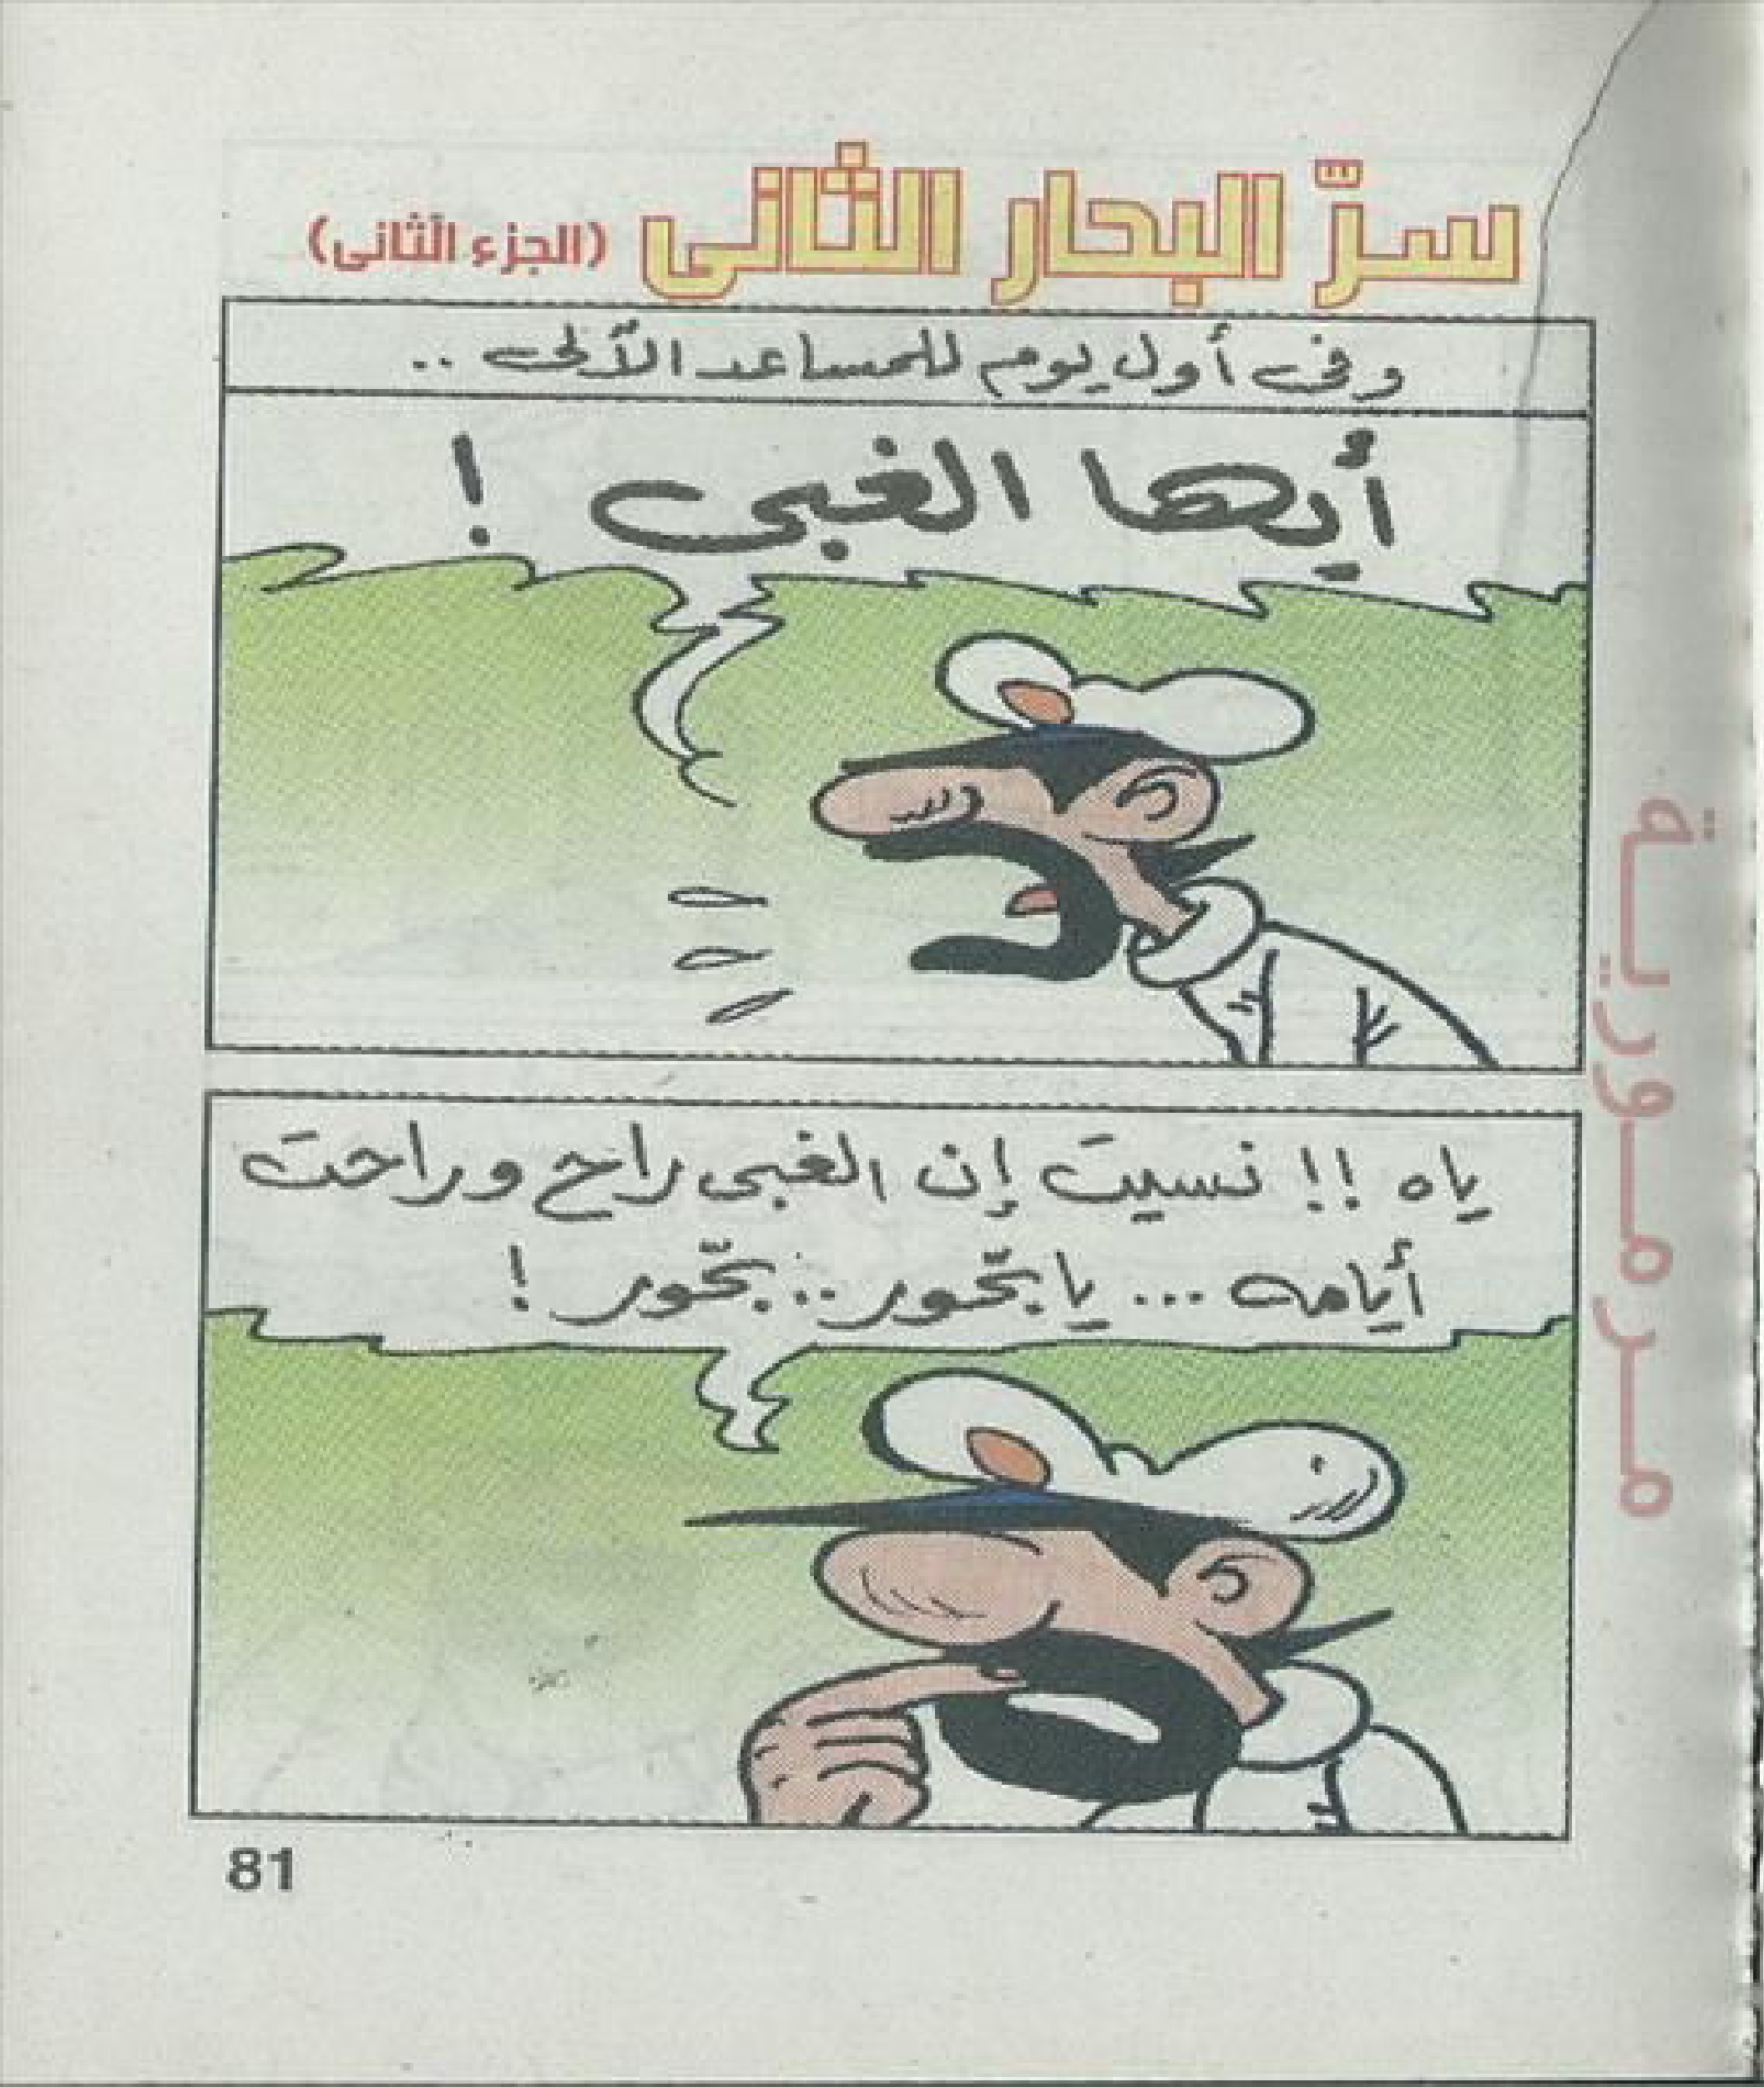 سرّ البحار الثانى (الجزء الثانى)
وفى أول يوم للمساعد الآلى ..
أيها الغبى !
ياه !! نسيت إن الغبى راح وراحت
أيامه ... يا بحّور .. بحّور !
مرمورية
81